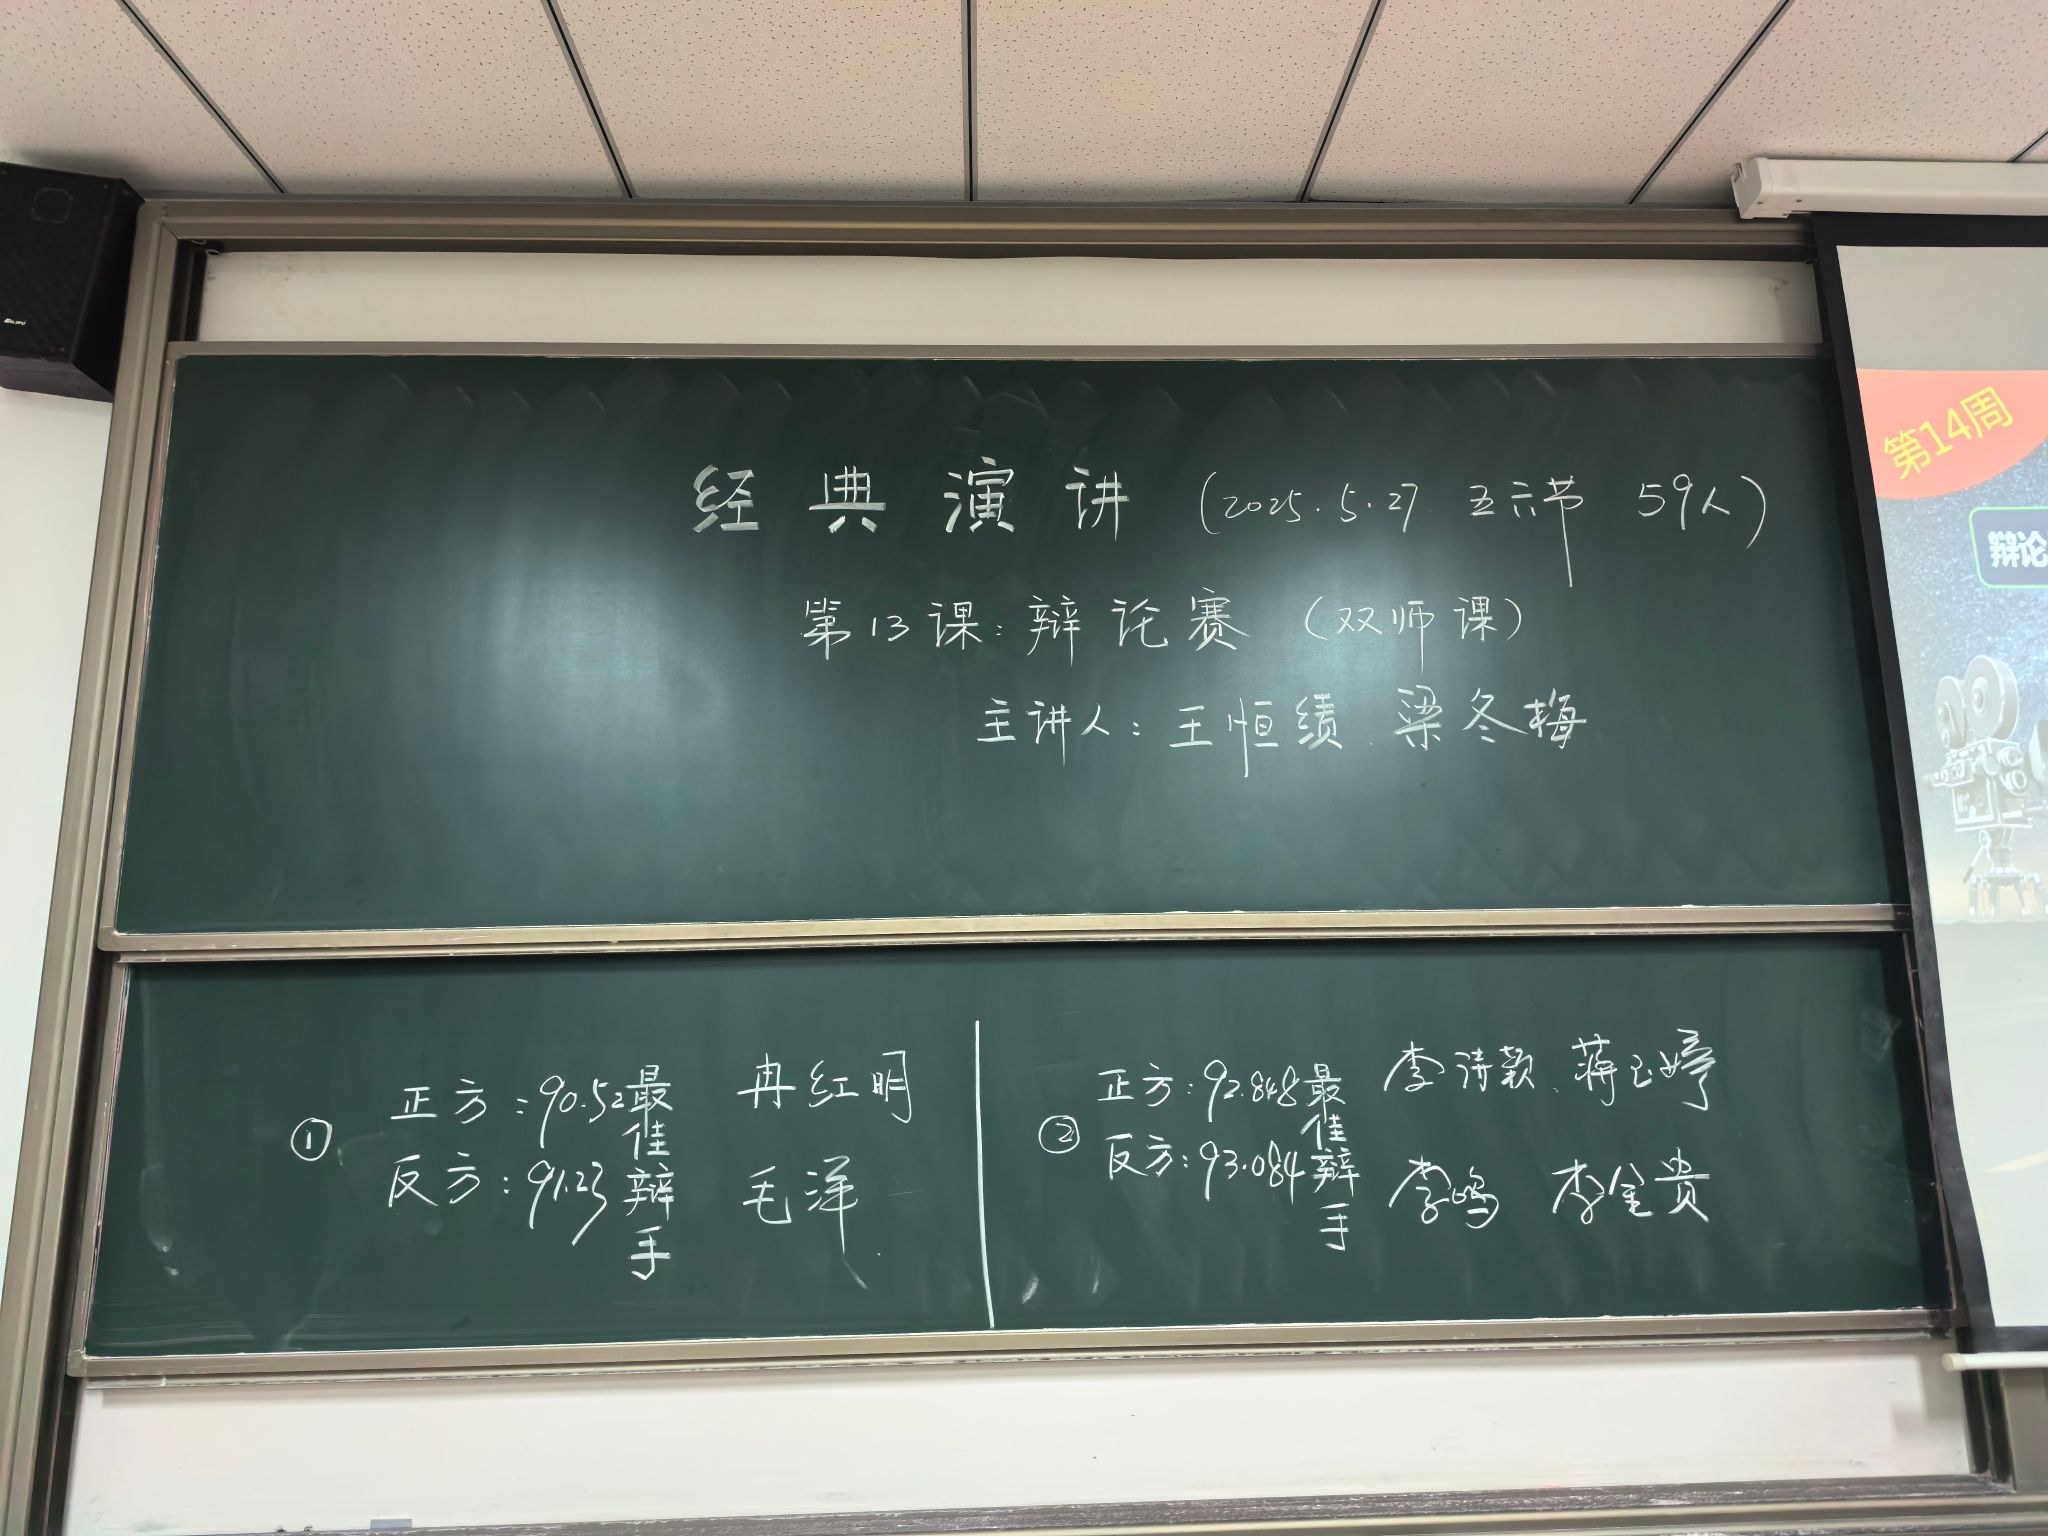 经典演讲（2025.5.27 五六节 59人）
第13课：辩论赛（双师课）
主讲人：王恒绩 梁冬梅
第14周
辩论
① 正方：90.52 最佳辩手 冉红明
反方：91.23 毛洋
② 正方：92.848 最佳辩手 李诗颖、蒋玉婷
反方：93.084 李鸣 李金贵